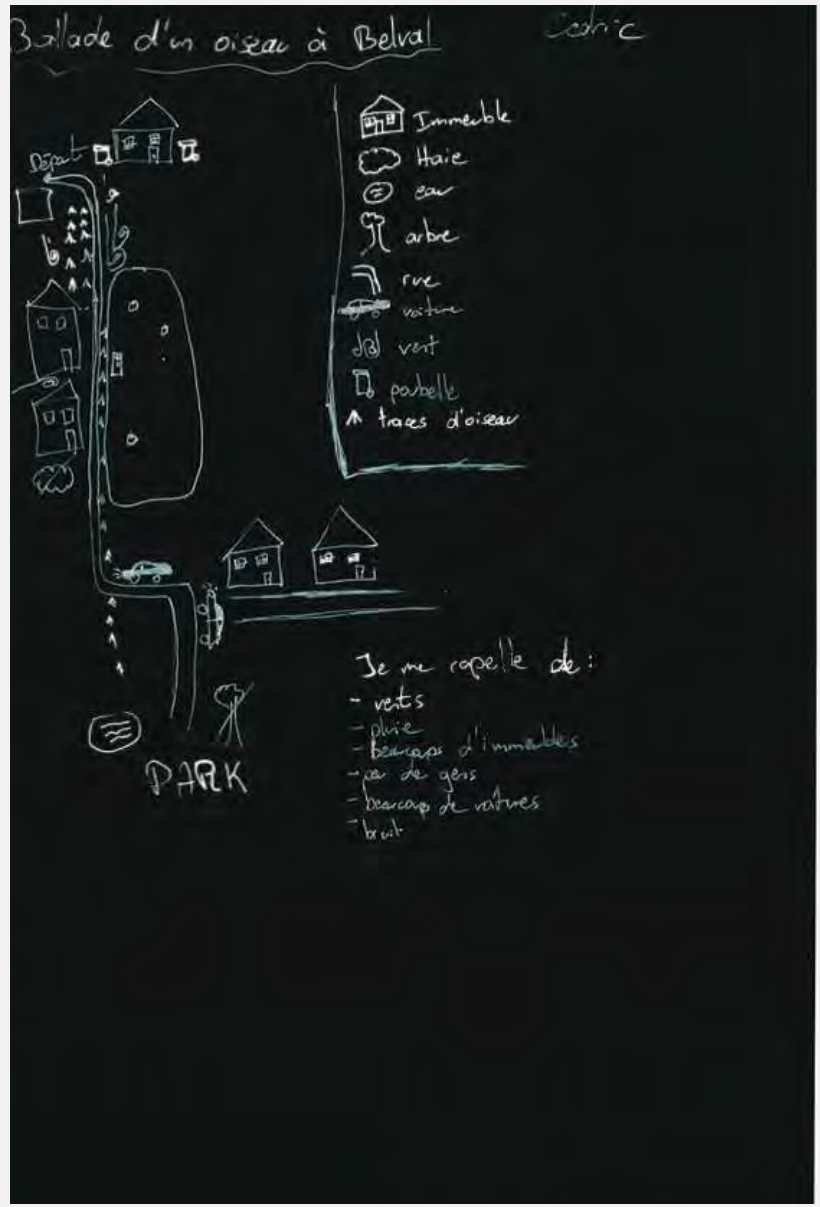 Ballade d'un oiseau à Belval
Cedric
Départ
Immeuble
Haie
eau
arbre
rue
voiture
vent
poubelle
traces d'oiseau
Je me rapelle de :
- vents
- pluie
- beaucops d'immeubles
- peu de gens
- beaucoup de voitures
- bruit
PARK